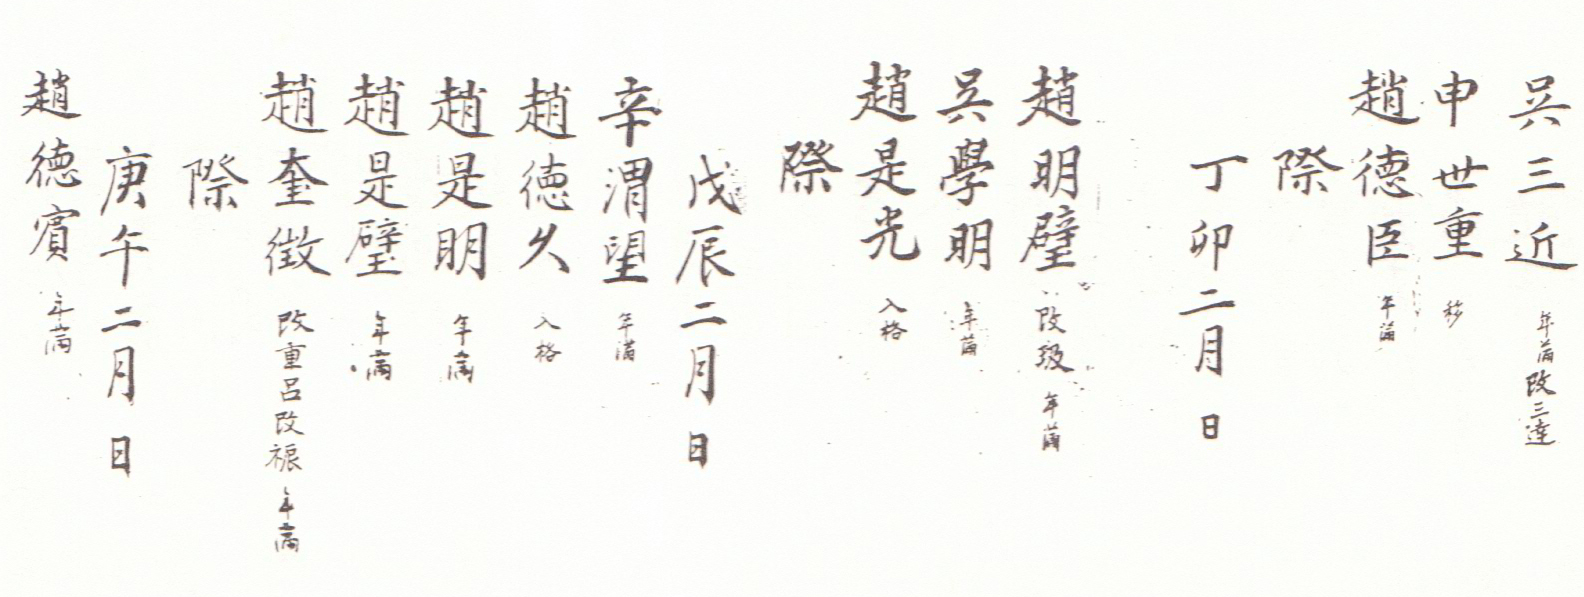 吳三近 年滿 改三達
申世重 移
趙德臣 年滿
際
丁卯二月 日
趙明璧 改 年滿
吳學明 年滿
趙是光 入格
際
戊辰二月日
辛渭望 年滿
趙德久 入格
趙是明 年滿
趙是璧 年滿
趙奎徴 改重呂改振 年滿
際
庚午二月 日
趙德賓 年滿